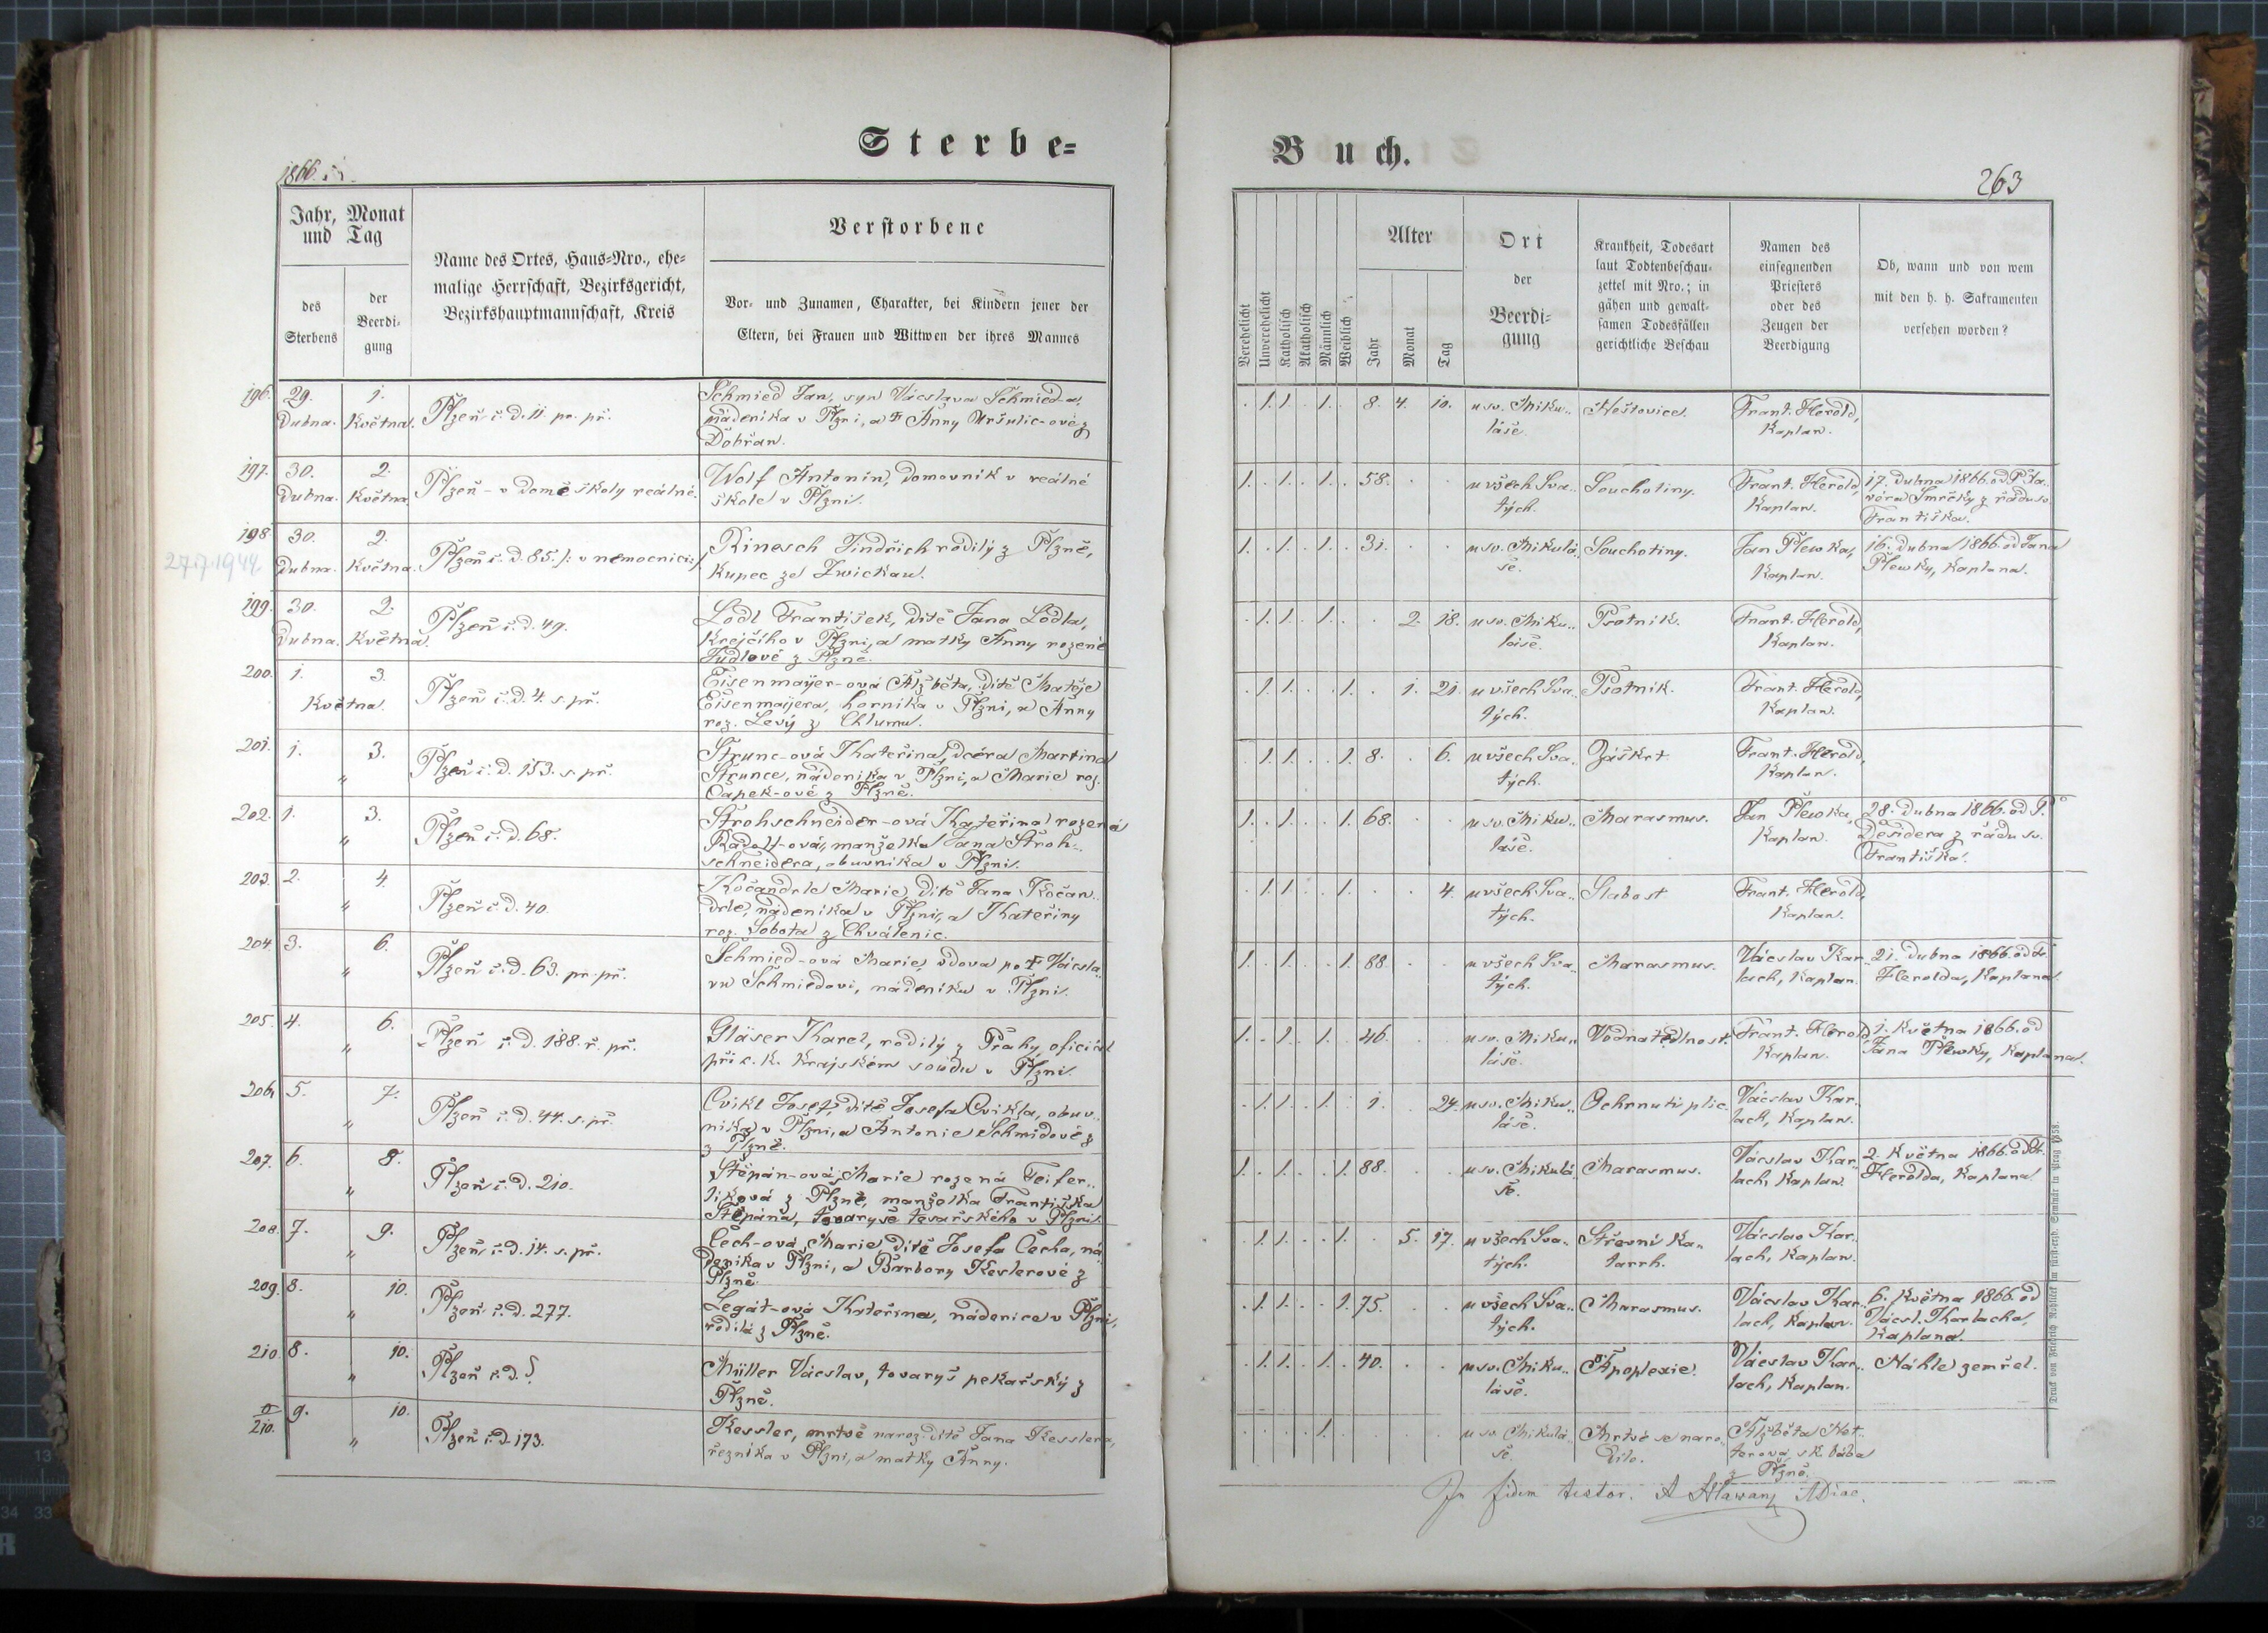 Sterbe=
1866.
Jahr, Monat
und Tag
des
Sterbens
der
Beerdi=
gung
Name des Ortes, Haus=Nro., ehe=
malige Herrschaft, Bezirksgericht,
Bezirkshauptmannschaft, Kreis
Verstorbene
Vor= und Zunamen, Charakter, bei Kindern jener der
Eltern, bei Frauen und Wittwen der ihres Mannes
196. 29. 1. Schmied Jan, syn Vácslava Schmied-a,
Dubna. Května. Plzeň č. d. 11. pr. př. nádeníka v Plzni, a † Anny Uršulic-ové z
Dobřan.
197. 30. 2. Wolf Antonín, domovník v reálné
Dubna. Května. Plzeň - v domě školy reálné. škole v Plzni.
198. 30. 2. Rinesch Jindřich rodilý z Plzně,
27.7.1944
Dubna. Května. Plzeň č. d. 85. /: v nemocnici :/ Kupec ze Zwickau.
199. 30. 2. Plzeň č. d. 49. Lödl František, dítě Jana Lödla,
Dubna. Května. Krejčího v Plzni, a matky Anny rozené
z Plzně.
200. 1. 3. Plzeň č. d. 4. s. př. Eisenmayer-ová Alžběta, dítě Matěje
Května. Eisenmaijera, horníka v Plzni, a Anny
roz. Levý z Chlumu.
201. 1. 3. Plzeň č. d. 153. s. př. Štrunc-ová Kateřina, dcéra Martina
„ Štrunce, nádeníka v Plzni, a Marie roz.
Čapek-ové z Plzně.
202. 1. 3. Plzeň č. d. 68. Strohschneider-ová Kateřina rozená
„ manželka Jana Stroh-
schneidera, obuvníka v Plzni.
203. 2. 4. Kočandrle Marie, dítě Jana Kočan-
„ Plzeň č. d. 40. drle, nádeníka v Plzni, a Kateřiny
roz. Sobota z Chválenic.
204. 3. 6. Plzeň č. d. 63. pr. př. Schmied-ová Marie, vdova po † Vácsla-
„ vu Schmiedovi, nádeníku v Plzni.
205. 4. 6. Plzeň č. d. 188. ř. př. Gläser Karel, rodilý z Prahy, oficiál
„ při c. k. Krajském soudu v Plzni.
206. 5. 7. Plzeň č. d. 44. s. př. Cvikl Josef, dítě Josefa Cvikla, obuv-
„ níka v Plzni, a Antonie Schmidové z
z Plzně.
207. 6. 8. Plzeň č. d. 210. Štěpán-ová Marie rozená Feifer-
„ líková z Plzně, manželka Františka
Štěpána, tovaryše tesařského v Plzni.
208. 7. 9. Plzeň č. d. 14. s. př. Čech-ová Marie, dítě Josefa Čecha, ná-
„ deníka v Plzni, a Barbory Keslerové z
Plzně.
209. 8. 10. Plzeň č. d. 277. Legát-ová Kateřina, nádenice v Plzni,
„ rodilá z Plzně.
210. 8. 10. Plzeň č. d. Müller Vácslav, tovaryš pekařský z
„ Plzně.
210. 9. 10. Plzeň č. d. 173. Kessler, mrtvě naroz. dítě Jana Kesslera,
„ řezníka v Plzni, a matky Anny.
Buch.
263
Verehelicht
Unverehelicht
Katholisch
Akatholisch
Männlich
Weiblich
Alter
Jahr
Monat
Tag
Ort
der
Beerdi=
gung
Krankheit, Todesart
laut Todtenbeschau=
zettel mit Nro.; in
gähen und gewalt=
samen Todesfällen
gerichtliche Beschau
Namen des
einsegnenden
Priesters
oder des
Zeugen der
Beerdigung
Ob, wann und von wem
mit den h. h. Sakramenten
versehen worden?
. 1. 1. . 1. . 8. 4. 10. u sv. Miku- Neštovice. Frant. Herold,
láše. Kaplan.
1. . 1. . 1. . 58. . . u všech Sva- Souchotiny. Frant. Herold, 17. Dubna 1866. od P.
tých. Kaplan. Smrčky z řádu sv.
Františka.
1. . 1. . 1. . 31. . . u sv. Mikulá- Souchotiny. Jan Plewka, 16. Dubna 1866. od Jana
še. Kaplan. Plewky, Kaplana.
. 1. 1. . 1. . . 2. 18. u sv. Miku- Psotník. Frant. Herold,
láše. Kaplan.
. 1. 1. . . 1. . 1. 21. u všech Sva- Psotník. Frant. Herold,
tých. Kaplan.
. 1. 1. . . 1. 8. . 6. u všech Sva- Záškrt. Frant. Herold,
tých. Kaplan.
1. . 1. . . 1. 68. . . u sv. Miku- Marasmus. Jan Plewka, 28. Dubna 1866. od P.
láše. Kaplan. Desidera z řádu sv.
Františka.
. 1. 1. . . 1. . . 4. u všech Sva- Slabost. Frant. Herold,
tých. Kaplan.
1. . 1. . . 1. 88. . . u všech Sva- Marasmus. Vácslav Kar- 21. Dubna 1866. od
tých. lach, Kaplan. Herolda, Kaplana.
1. . 1. . 1. . 46. . . u sv. Miku- Vodnatedlnost. Frant. Herold, 1. Května 1866. od
láše. Kaplan. Jana Plewky, Kaplana.
. 1. 1. . 1. . 1. . 24. u sv. Miku- Ochrnutí plic. Vácslav Kar-
láše. lach, Kaplan.
1. . 1. . . 1. 88. . . u sv. Mikulá- Marasmus. Vácslav Kar- 2. Května 1866. od
še. lach, Kaplan. Herolda, Kaplana.
. 1. 1. . . 1. . 5. 17. u všech Sva- Střevní ka- Vácslav Kar-
tých. tarrh. lach, Kaplan.
. 1. 1. . . 1. 75. . . u všech Sva- Marasmus. Vácslav Kar- 6. Května 1866. od
tých. lach, Kaplan. Vácsl. Karlacha,
Kaplana.
. 1. 1. . 1. . 40. . . u sv. Miku- Apoplexie. Vácslav Kar- Náhle zemřel.
láše. lach, Kaplan.
. . . . 1. . . . . u sv. Mikulá- Mrtvě se naro- Alžběta
še. dilo. bába
z Plzně.
In fidem testor.
Druck von Friedrich Rohliček im fürst-erzb. Seminär in Prag 1858.